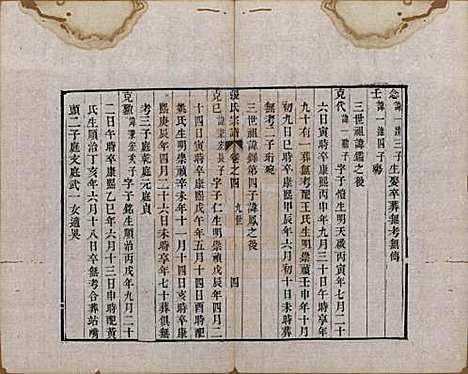 念諱一潢三子生娶卒葬無考無傳
壬諱一潢四子殤
三世祖諱鑑之後
克代諱一驥子字子愷生明天啟丙寅年七月二十
六日寅時卒康熙四十四年三月二十日亥時享年
九十有一葬無考配王氏生明崇禎壬申年十月
初九日巳時卒康熙甲辰年六月初十日未時葬
無考二子珩琬
三世祖諱錦第四子諱鳳之後
張氏宗譜 卷之四 九世 四
克巳諱秉彝長子字子仁生明崇禎戊辰年四月二
十四日寅時卒康熙戊午年五月十四日酉時配
葉氏生明崇禎年十一月十四日亥時卒康
熙庚辰年四月二十六日未時享年七十葬俱無
考三子庭乾庭元庭貞
克勤諱秉彝次子字子銘生順治丙戌年九月二十
二日午時卒康熙乙巳年六月十三日申時配黃
氏生順治丁亥年六月十八日卒無考合葬站嘴
頭二子庭文庭武一女適吳